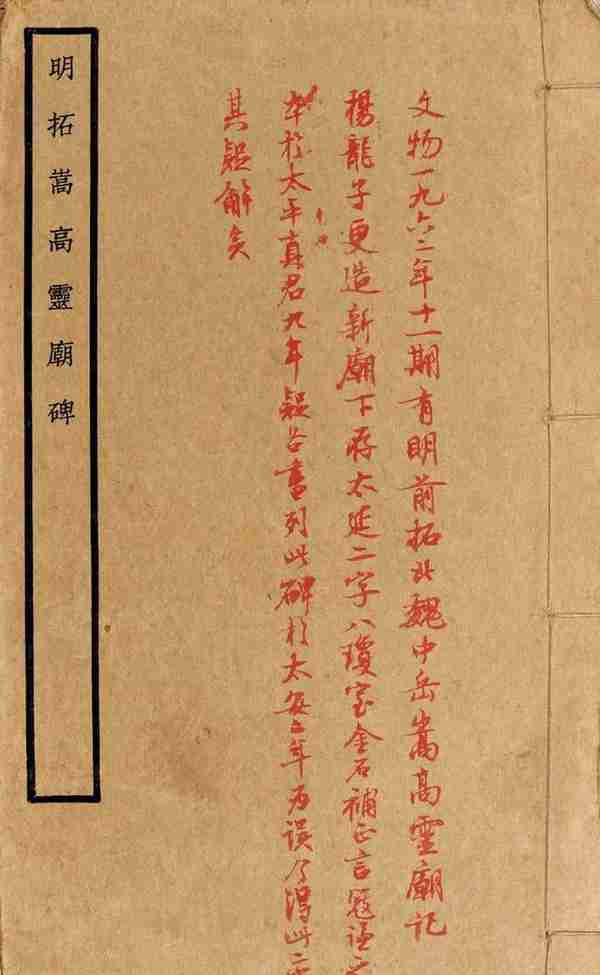 文物一九六二年十一期有明前拓北魏中岳嵩高靈廟記
楊龍子更造新廟下存太延二字八瓊室金石補正言寇謙之
卒於太平真君九年疑各書列此碑於太安二年為誤今得此二
其疑解矣
明拓嵩高靈廟碑